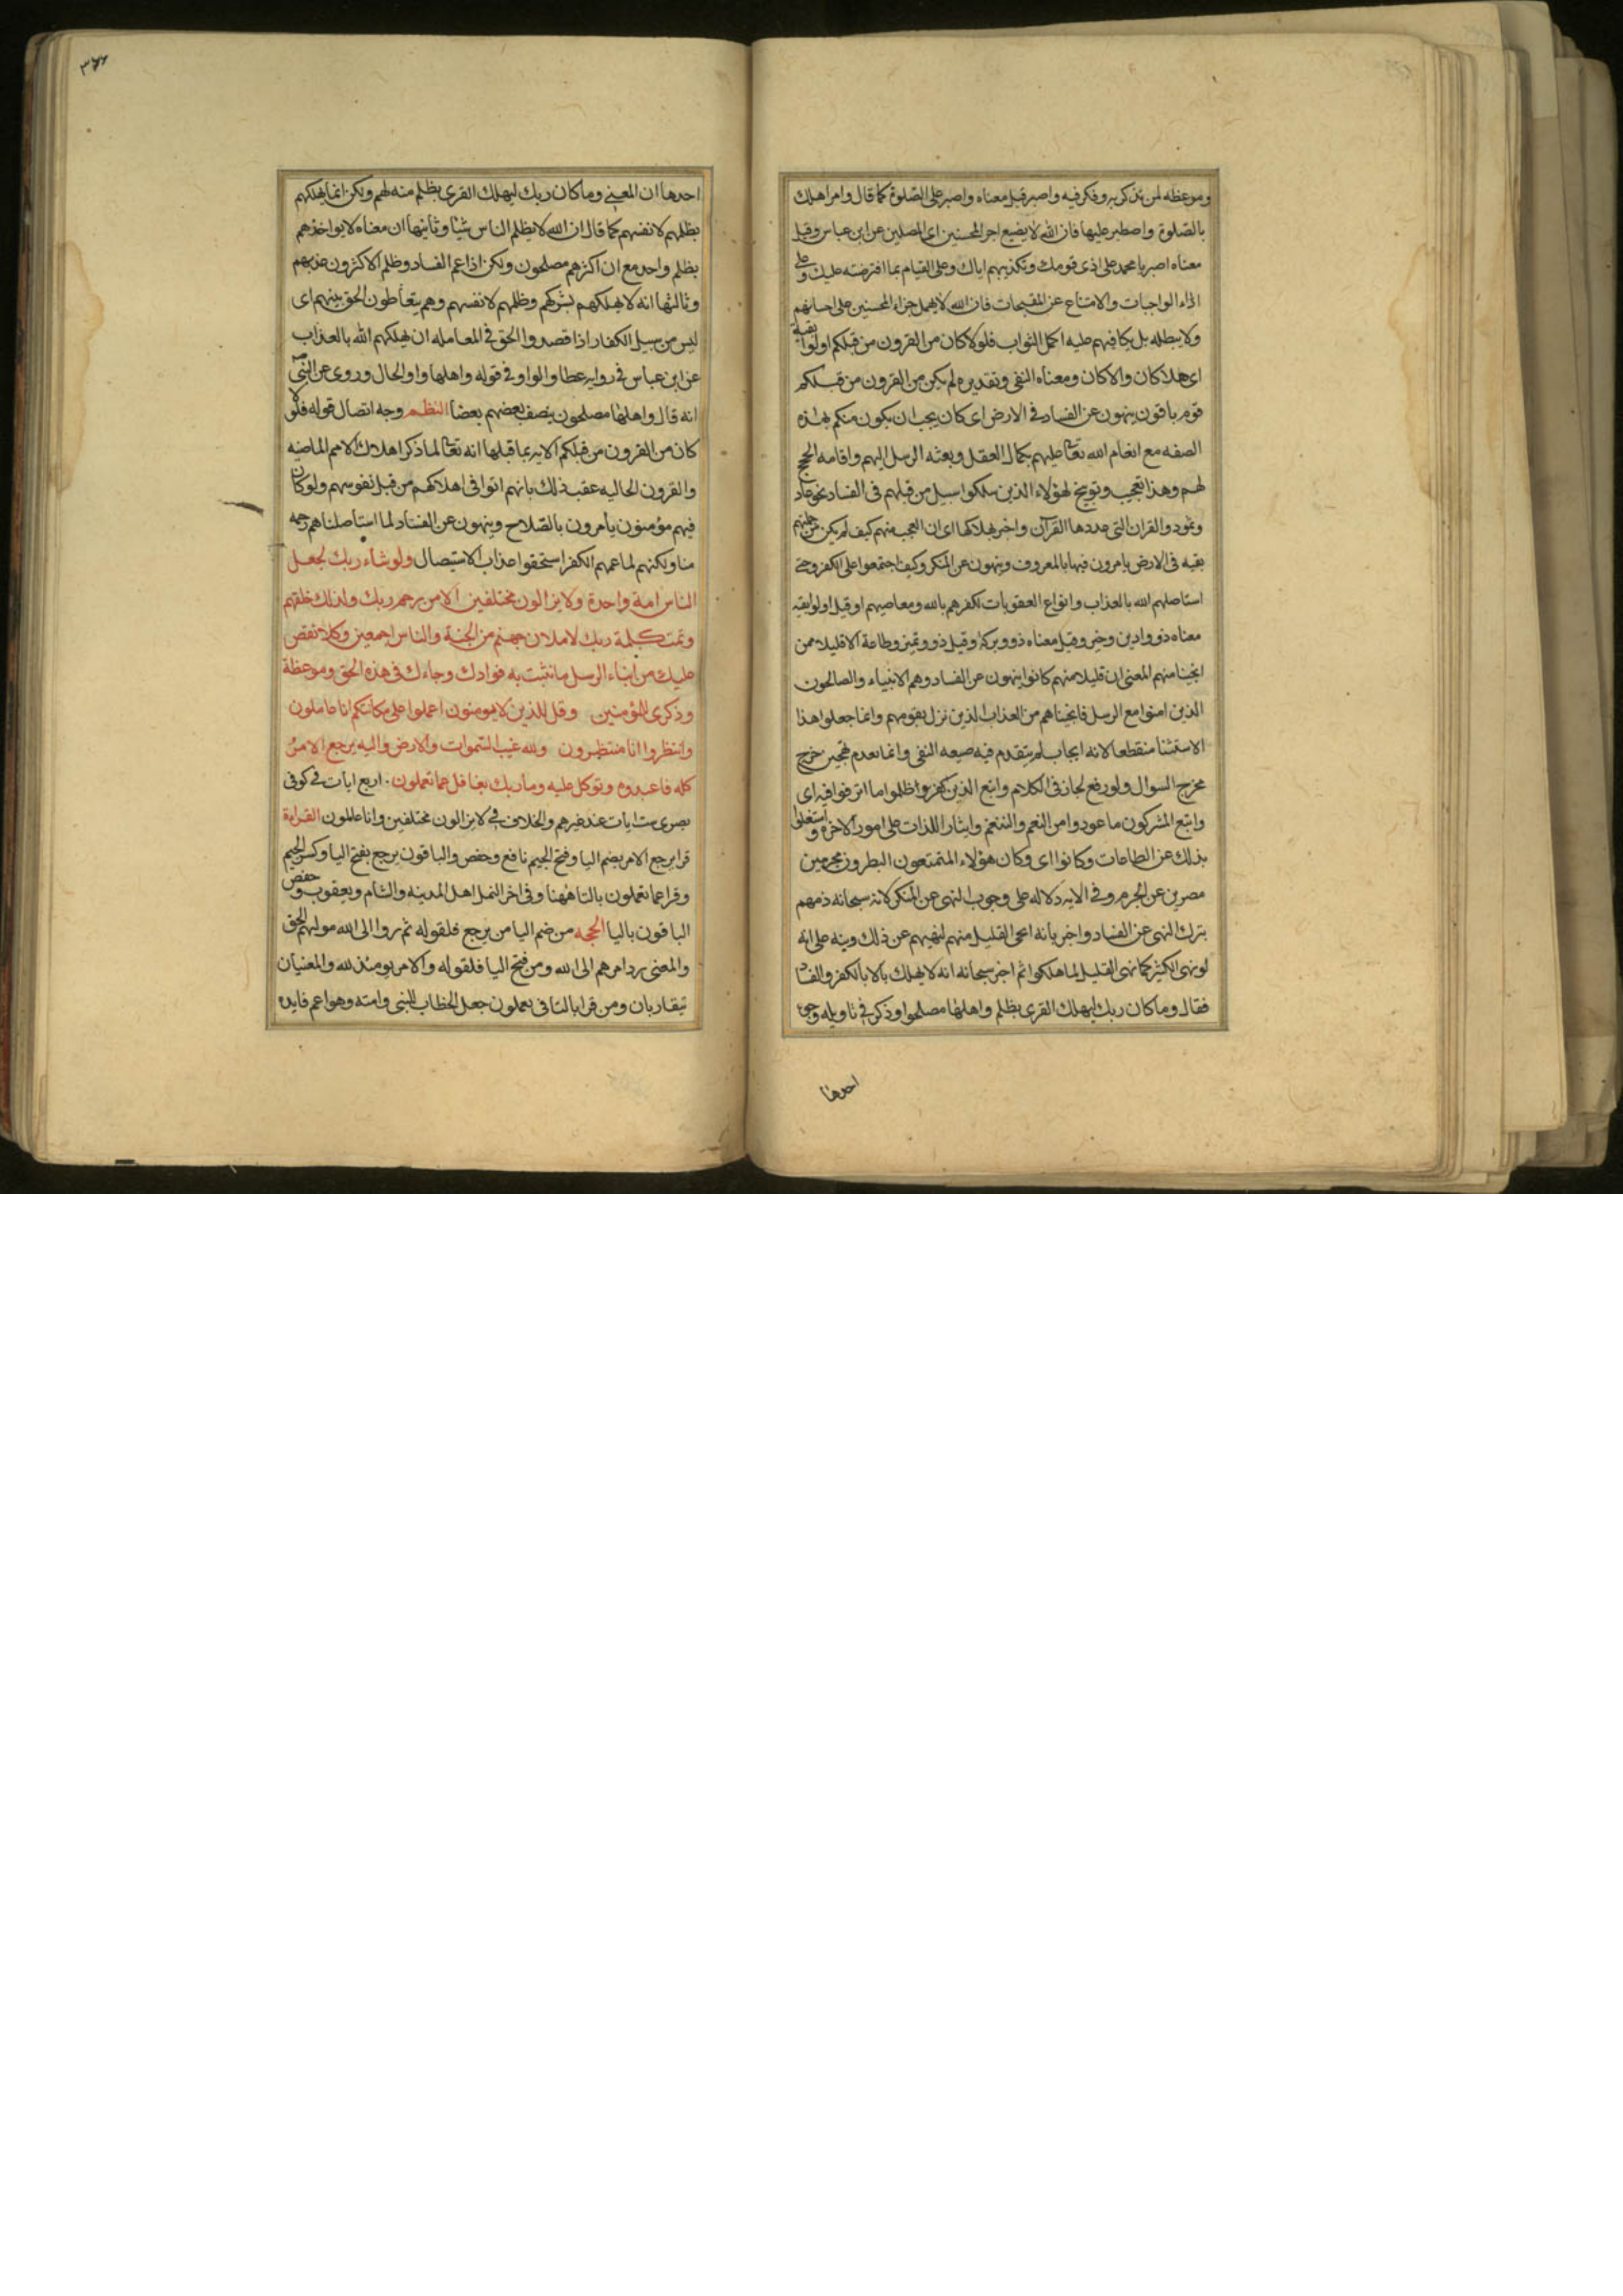 وموعظه لمن تذكر به وفكر فيه واصبر قيل معناه واصبر على الصّلوة كما قال وامر اهلك
بالصّلوة واصطبر عليها فان الله لا يضيع اجر المحسنين اى المصلين عن ابن عباس وقيل
معناه اصبر يا محمد على اذى قومك وتكذيبهم اياك وعلى القيام بما افترضته عليك وعلى
اداء الواجبات والامتناع عن المقبحات فان الله لا يهمل جزاء المحسنين على احسانهم
ولا يبطله بل يكافيهم عليه اكمل الثواب فلولا كان من القرون من قبلكم اولوا بقية
اى هلا كان والا كان ومعناه النفى وتقديره لم يكن من القرون من قبلكم
قوم باقون ينهون عن الفساد فى الارض اى كان يجب ان يكون منكم بهذه
الصفه مع انعام الله تعالى عليهم بكمال العقل وبعثه الرسل اليهم واقامه الحجج
لهم وهذا تعجيب وتوبيخ لهؤلاء الذين سلكوا سبيل من قبلهم فى الفساد نحو عاد
وثمود والقران التى عددها القرآن واخبر بهلاكها اى ان العجب منهم كيف لم يكن من جملتهم
بقيه فى الارض يامرون فيها بالمعروف وينهون عن المنكر وكيف اجتمعوا على الكفر وحتى
استاصلهم الله بالعذاب وانواع العقوبات لكفرهم بالله ومعاصيهم او قيل اولوا بقيه
معناه ذووا دين وخير وقيل معناه ذووبركة وقيل ذووتميز وطاعة الا قليلا ممن
انجينا منهم المعنى ان قليلا منهم كانوا ينهون عن الفساد وهم الانبياء والصالحون
الذين امنوا مع الرسل فانجيناهم من العذاب الذين نزل بقومهم وانما جعلوا هذا
الاستثنا منقطعا لانه ايجاب لم يتقدم فيه صيعه النفى وانما تقدم تهجين خرج
مخرج السوال ولو رفع لجاز فى الكلام واتبع الذين كفروا ظلموا ما اترفوا فيه اى
واتبع المشركون ما عودوا من النعم والتنعم وايثار اللذات على امور الاخرة واستغلوا
بذلك عن الطاعات وكانوا اى وكان هؤلاء المتمتعون البطرون مجرمين
مصرين عن الجرم وفى الايه دلاله على وجوب النهى عن المنكر لانه سبحانه ذمهم
بترك النهى عن الفساد واخبر بانه انجى القليل منهم لنهيهم عن ذلك وبينه على انه
لو نهى الكثير كما نهى القليل لما هلكوا ثم اخبر سبحانه انه لا يهلك بالا بالكفر والفساد
فقال وما كان ربك ليهلك القرى بظلم واهلها مصلحوا وذكر فى تاويله وجوه
احدها
٣٧٧
احدها ان المعنى وما كان ربك ليهلك القرى بظلم منه لهم ولكن انما يهلكهم
بظلمهم لانفسهم كما قال ان الله لا يظلم الناس شيئا وثانيها ان معناه لا يواخذهم
بظلم واحد مع ان اكثرهم مصلحون ولكن اذا عم الفساد وظلم الاكثرون عذبهم
وثالثها انه لا يهلكهم بشركهم وظلمهم لانفسهم وهم يتعاطون الحق بينهم اى
ليس من سبيل الكفار اذا قصدوا الحق فى المعامله ان يهلكهم الله بالعذاب
عن ابن عباس فى روايه عطا والواو فى قوله واهلها واو الحال وروى عن النبى ص
انه قال واهلها مصلحون ينصف بعضهم بعضا النظم وجه اتصال قوله فلولا
كان من القرون من قبلكم الايه بما قبلها انه تعالى لما ذكر اهلاك الامم الماضيه
والقرون الخاليه عقب ذلك بانهم اتوا فى اهلاكهم من قبل نفوسهم ولو كان
فيهم مؤمنون يامرون بالصّلاح وينهون عن الفساد لما استاصلناهم رحمه
منا ولكنهم لما عمهم الكفر استحقوا عذاب الاستيصال ولو شاء ربك لجعل
الناس امة واحدة ولا يزالون مختلفين الا من رحم ربك ولذلك خلقهم
وتمت كلمة ربك لاملان جهنم من الجنة والناس اجمعين وكلا نقص
عليك من انباء الرسل ما نثبت به فوادك وجاءك فى هذه الحق وموعظة
وذكرى للمؤمنين وقل للذين لا يومنون اعملوا على مكانتكم انا عاملون
وانتظروا انا منتظرون ولله غيب السّموات والارض واليه يرجع الامر
كله فاعبده وتوكل عليه وما ربك بغافل عما تعملون. اربع ايات فى كوفى
بصرى ست ايات عند غيرهم والخلاف فى لا يزالون مختلفين وانا عاملون القراءة
قرا يرجع الامر بضم اليا وفتح الجيم نافع وحفص والباقون يرجع بفتح اليا وكسر الجيم
وقرا عما تعملون بالتا ههنا وفى اخر النمل اهل المدينه والشام ويعقوب وحفص
الباقون باليا الحجه من ضم اليا من يرجع فلقوله ثم ردوا الى الله موليهم الحق
والمعنى يرد امرهم الى الله ومن فتح اليا فلقوله والامر يومئذ لله والمعنيان
يتقاربان ومن قرا بالتا فى يعملون جعل الخطاب للنبى وامته وهو اعم فايده